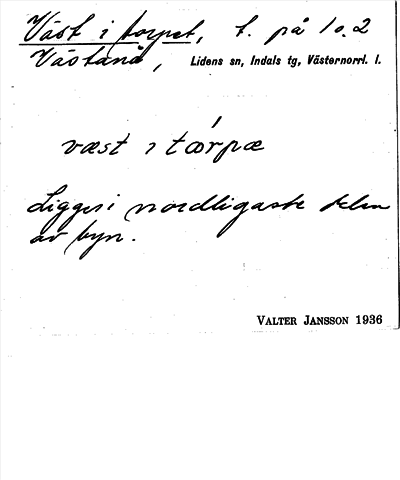 Väst i torpet, t. på 1 o. 2
Västanå, Lidens sn, Indals tg, Västernorrl. l.
væst ı tǽrpæ
Ligger i nordligaste delen
av byn.
VALTER JANSSON 1936